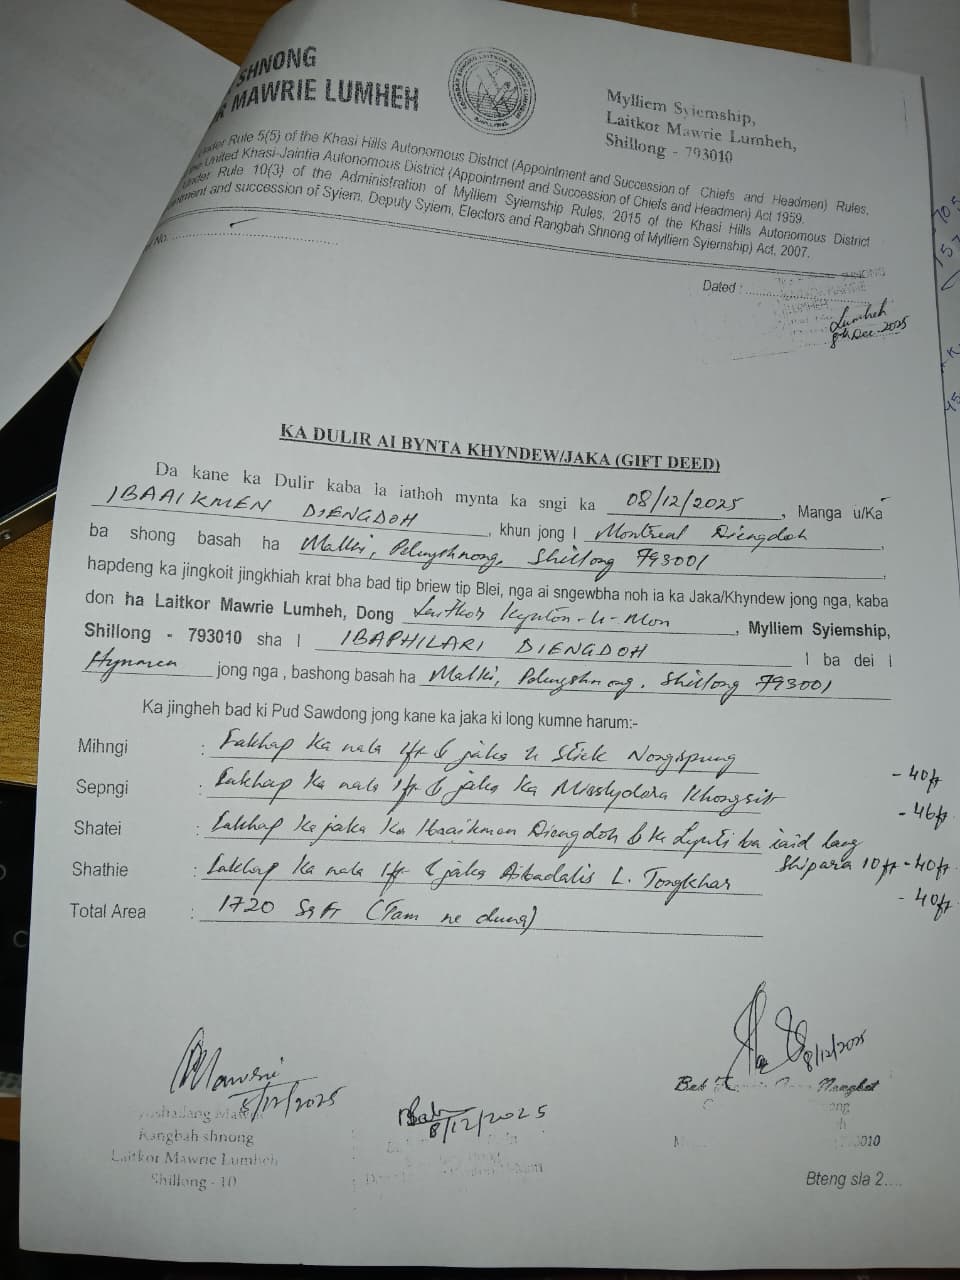 SHNONG
MAWRIE LUMHEH
Mylliem Syiemship,
Laitkor Mawrie Lumheh,
Shillong - 793010
Under Rule 5(5) of the Khasi Hills Autonomous District (Appointment and Succession of Chiefs and Headmen) Rules,
United Khasi-Jaintia Autonomous District (Appointment and Succession of Chiefs and Headmen) Act 1959.
Under Rule 10(3) of the Administration of Mylliem Syiemship Rules, 2015 of the Khasi Hills Autonomous District
and succession of Syiem, Deputy Syiem, Electors and Rangbah Shnong of Mylliem Syiemship) Act, 2007.
No.
Dated :
Lumheh
8th Dec-2025
KA DULIR AI BYNTA KHYNDEW/JAKA (GIFT DEED)
Da kane ka Dulir kaba la iathoh mynta ka sngi ka 08/12/2025, Manga u/Ka
IBAAIKMEN DIENGDOH, khun jong I Montreal Diengdoh,
ba shong basah ha Malki, Polungshnong, Shillong 793001,
hapdeng ka jingkoit jingkhiah krat bha bad tip briew tip Blei, nga ai sngewbha noh ia ka Jaka/Khyndew jong nga, kaba
don ha Laitkor Mawrie Lumheh, Dong Laitkor Kynton-U-Mon, Mylliem Syiemship,
Shillong - 793010 sha I IBAPHILARI DIENGDOH I ba dei I
Hynmen jong nga , bashong basah ha Malki, Polungshnong, Shillong 793001
Ka jingheh bad ki Pud Sawdong jong kane ka jaka ki long kumne harum:-
Mihngi : Lakhap ka nala 1ft & jaka u Slick Nongspung - 40ft
Sepngi : Lakhap ka nala 1ft & jaka ka Misslydora Khongsit - 46ft
Shatei : Lakhap ka jaka ka Ibaaikmen Diengdoh & ka Lynti ba iaid lang
shipara 10ft - 40ft
Shathie : Lakhap ka nala 1ft & jaka Aibadalis L. Tongkhar - 40ft
Total Area : 1720 Sq Ft (Tam ne duna)
8/12/2025
8/12/2025
8/12/2025
Rangbah shnong
Laitkor Mawrie Lumheh
Shillong - 10
Bteng sla 2....